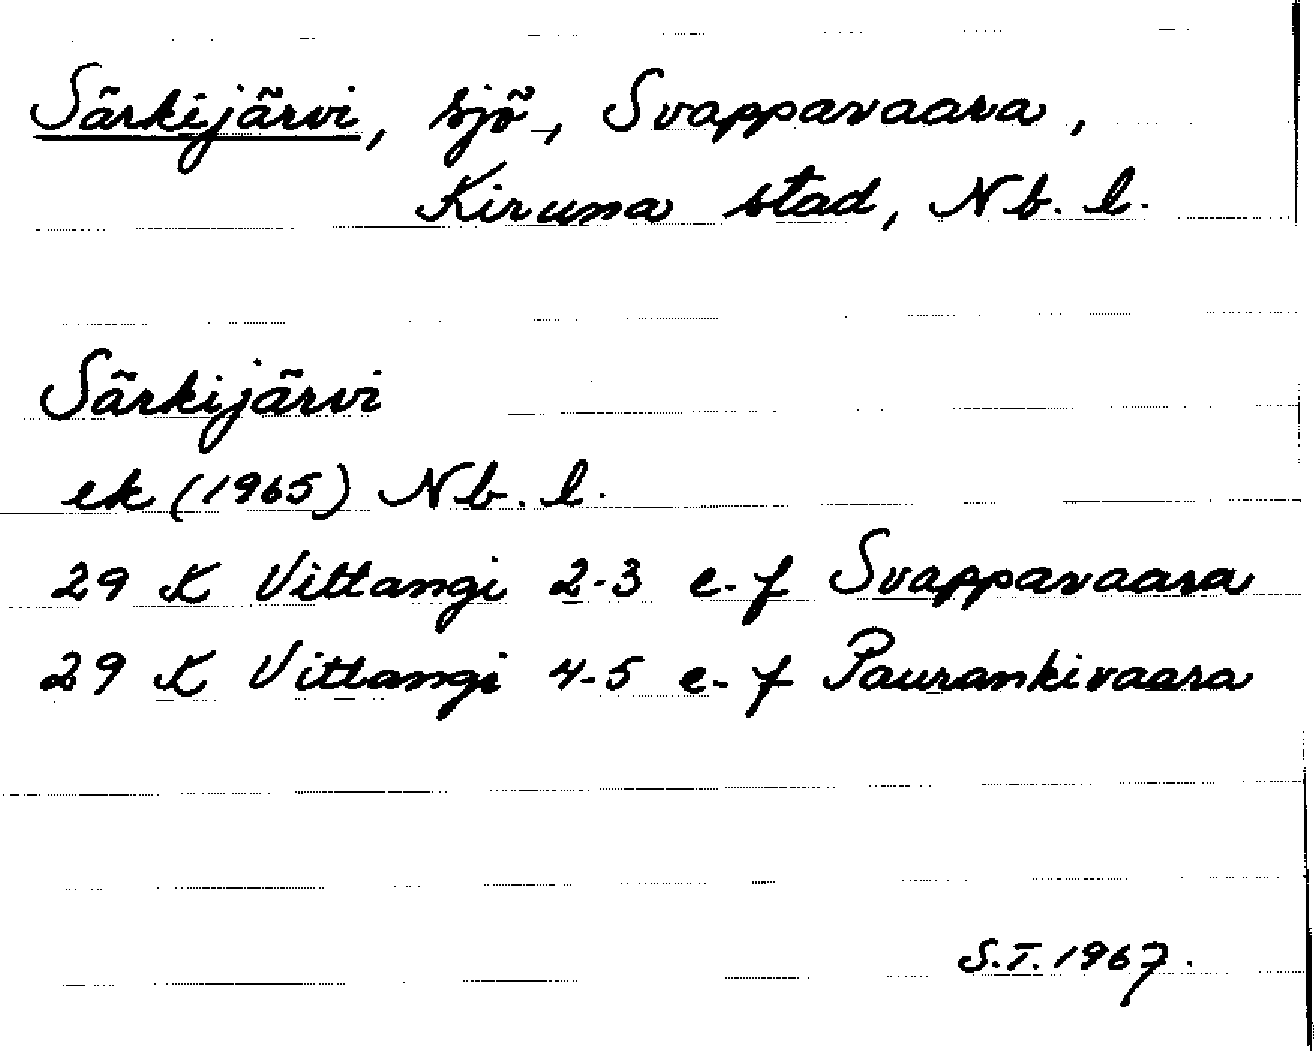 Särkijärvi, sjö, Svappavaara,
Kiruna stad, Nb. l.
Särkijärvi
ek (1965) Nb. l.
29 K Vittangi 2-3 e-f Svappavaara
29 K Vittangi 4-5 e-f Paurankivaara
S.T. 1967.